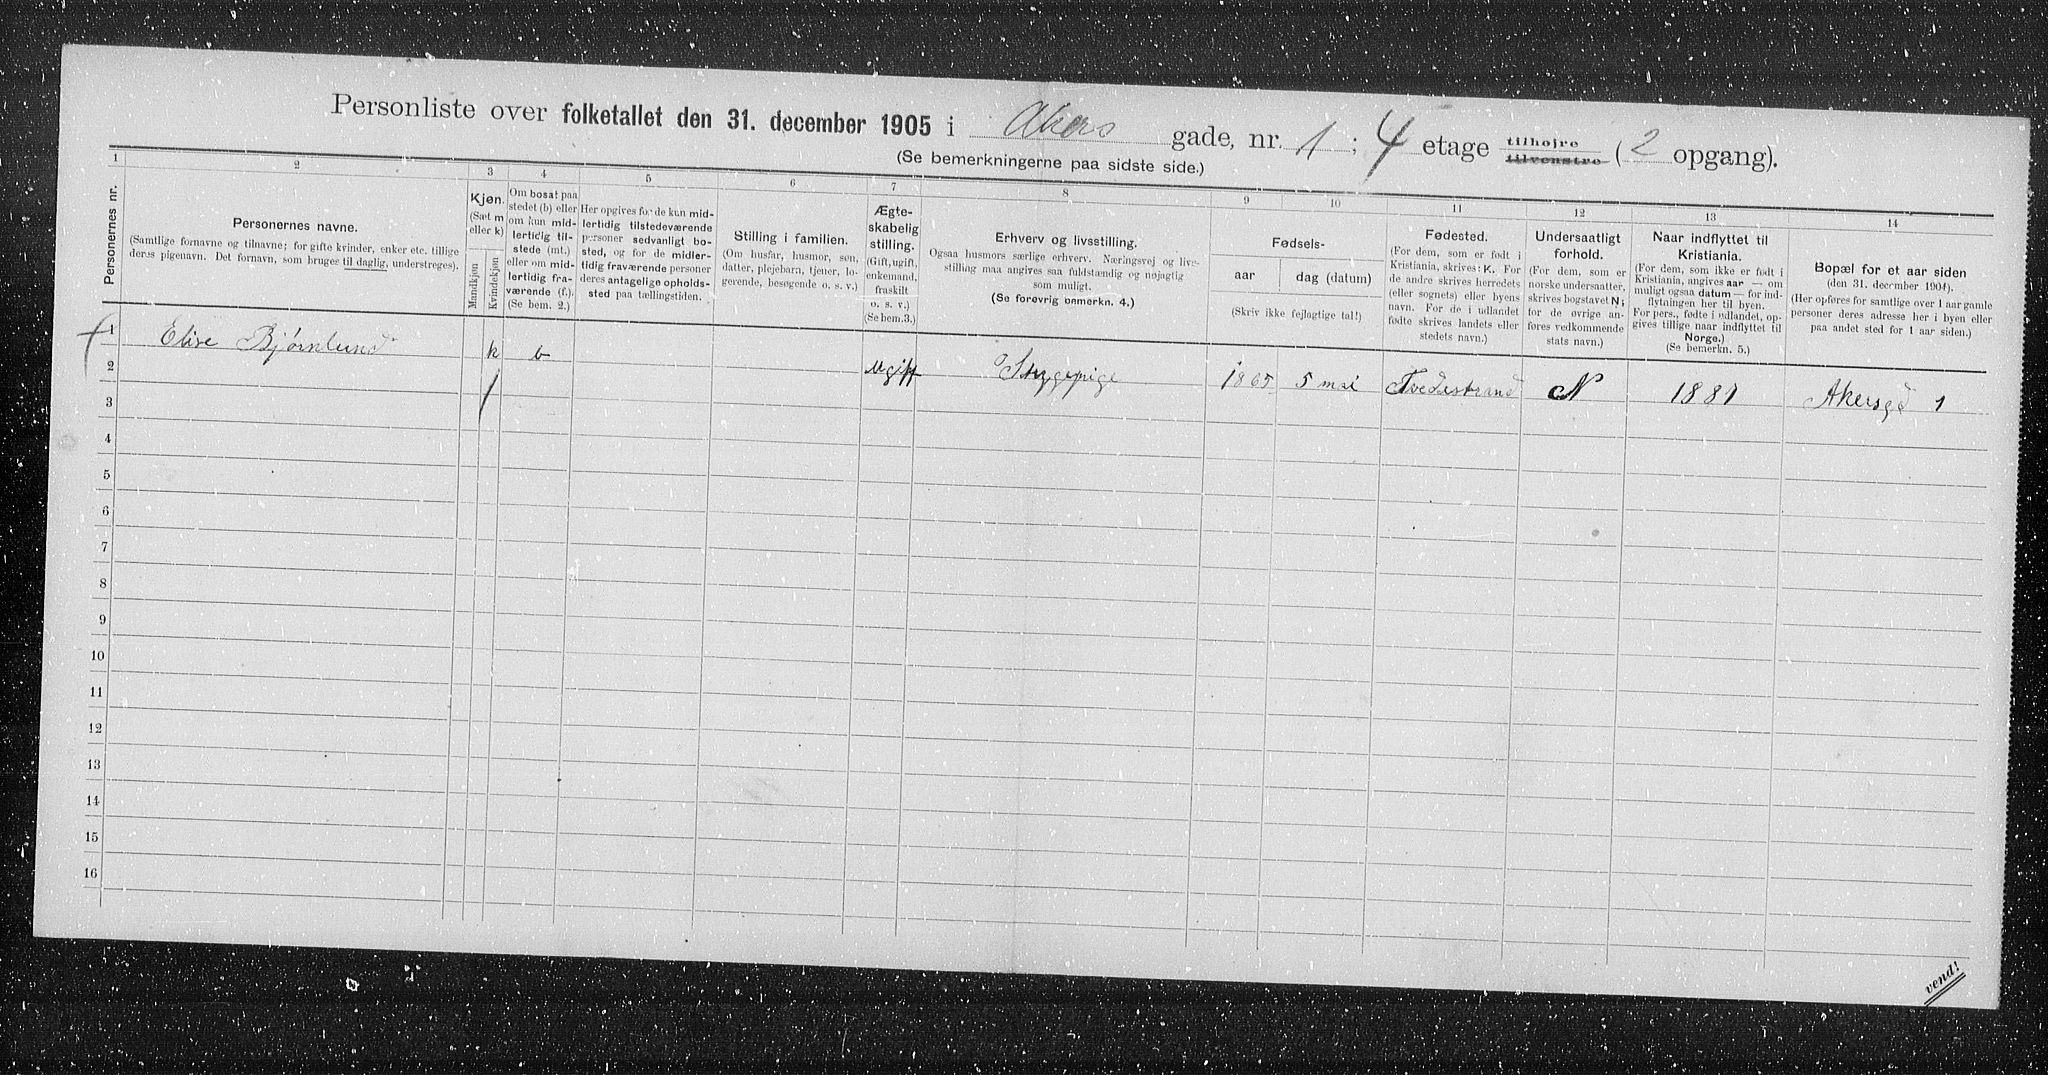 Personliste over folketallet den 31. december 1905 i Akers gade, nr. 1 ; 4 etage tilhøjre tilvenstre ( 2 opgang).
(Se bemerkningerne paa sidste side.)
1 2 3 4 5 6 7 8 9 10 11 12 13 14
Personernes nr.
Personernes navne.
(Samtlige fornavne og tilnavne; for gifte kvinder, enker etc. tillige
deres pigenavn. Det fornavn, som bruges til daglig, understreges).
Kjøn.
(Sæt m
eller k)
Mandkjøn
Kvindekjøn
Om bosat paa
stedet (b) eller
om kun mid-
lertidig til-
stede (mt.)
eller om mid-
lertidig fra-
værende (f.).
(Se bem. 2.)
Her opgives for de kun mid-
lertidig tilstedeværende
personer sedvanligt bo-
sted, og for de midler-
tidig fraværende personer
deres antagelige opholds-
sted paa tællingstiden.
Stilling i familien.
(Om husfar, husmor, søn,
datter, plejebarn, tjener, lo-
gerende, besøgende o. s. v.)
Ægte-
skabelig
stilling.
(Gift, ugift,
enkemand,
fraskilt
o. s. v.)
(Se bem.3.)
Erhverv og livsstilling.
Ogsaa husmors særlige erhverv. Næringsvej og livs-
stilling maa angives saa fuldstændig og nøjagtig
som muligt.
(Se forøvrig bemerkn. 4.)
Fødsels-
aar
dag (datum)
(Skriv ikke fejlagtige tal!)
Fødested.
(For dem, som er født i
Kristiania, skrives: K. For
de andre skrives herredets
(eller sognets) eller byens
navn. For de i udlandet
fødte skrives landets eller
stedets navn.)
Undersaatligt
forhold.
(For dem, som er
norske undersaatter,
skrives bogstavet N;
for de øvrige an-
føres vedkommende
stats navn.)
Naar indflyttet til
Kristiania.
(For dem, som ikke er født i
Kristiania, angives aar — om
muligt ogsaa datum — for ind-
flytningen her til byen.
For pers., fødte i udlandet, op-
gives tillige naar indflyttet til
Norge.)
(Se bemerkn. 5.)
Bopæl for et aar siden
(den 31. december 1904).
(Her opføres for samtlige over 1 aar gamle
personer deres adresse her i byen eller
paa andet sted for 1 aar siden.)
1 Elise Bjørnlund k b Ugift Strygepige 1865 5 mai Tvedestrand N 1881 Akersgd 1
2
3
4
5
6
7
8
9
10
11
12
13
14
15
16
vend!